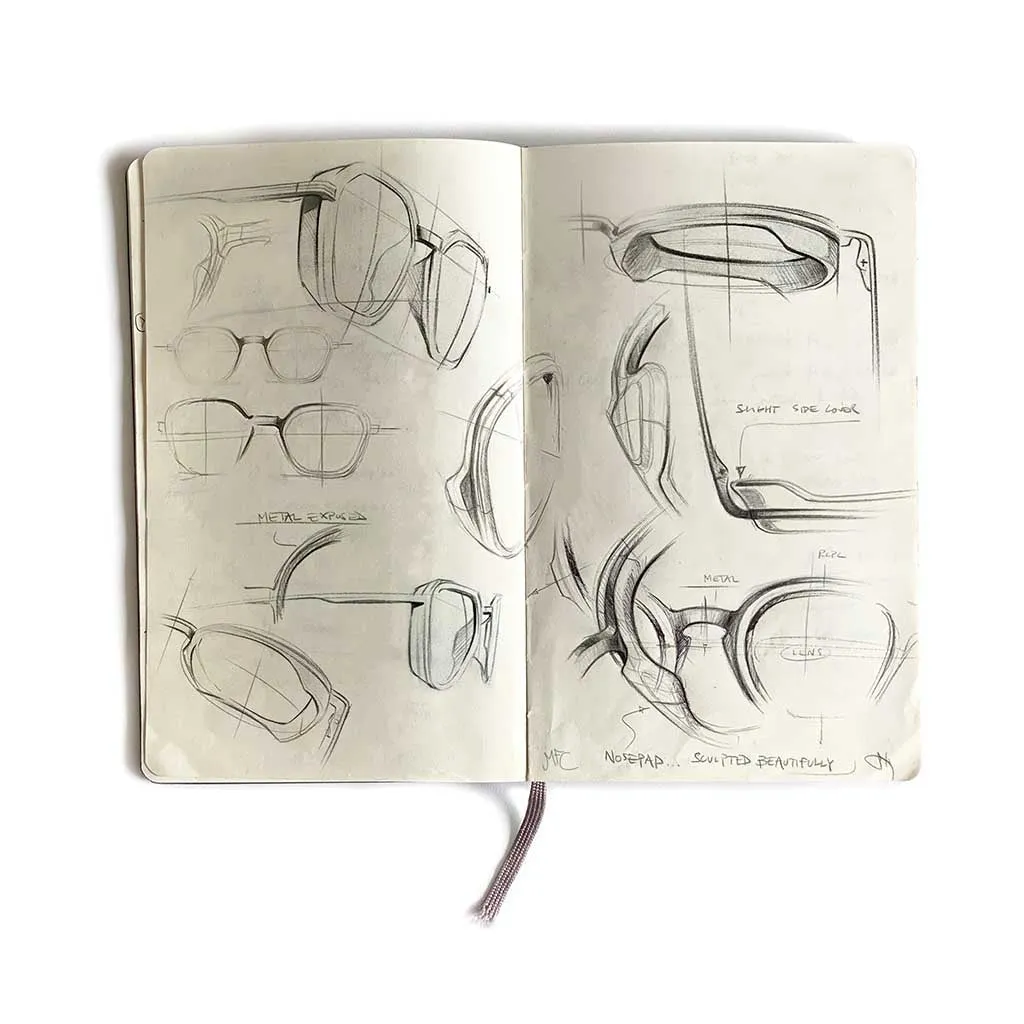 METAL EXPOSED
SLIGHT SIDE COVER
METAL
LENS
MFC
NOSEPAD... SCULPTED BEAUTIFULLY